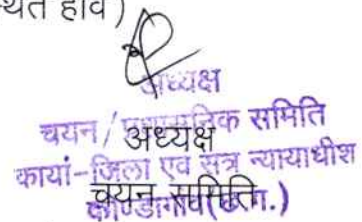 स्थित होवे)
अध्यक्ष
चयन / प्रशासनिक समिति
अध्यक्ष
कार्या-जिला एवं सत्र न्यायाधीश
चयन समिति
कोण्डागांव (छ.ग.)